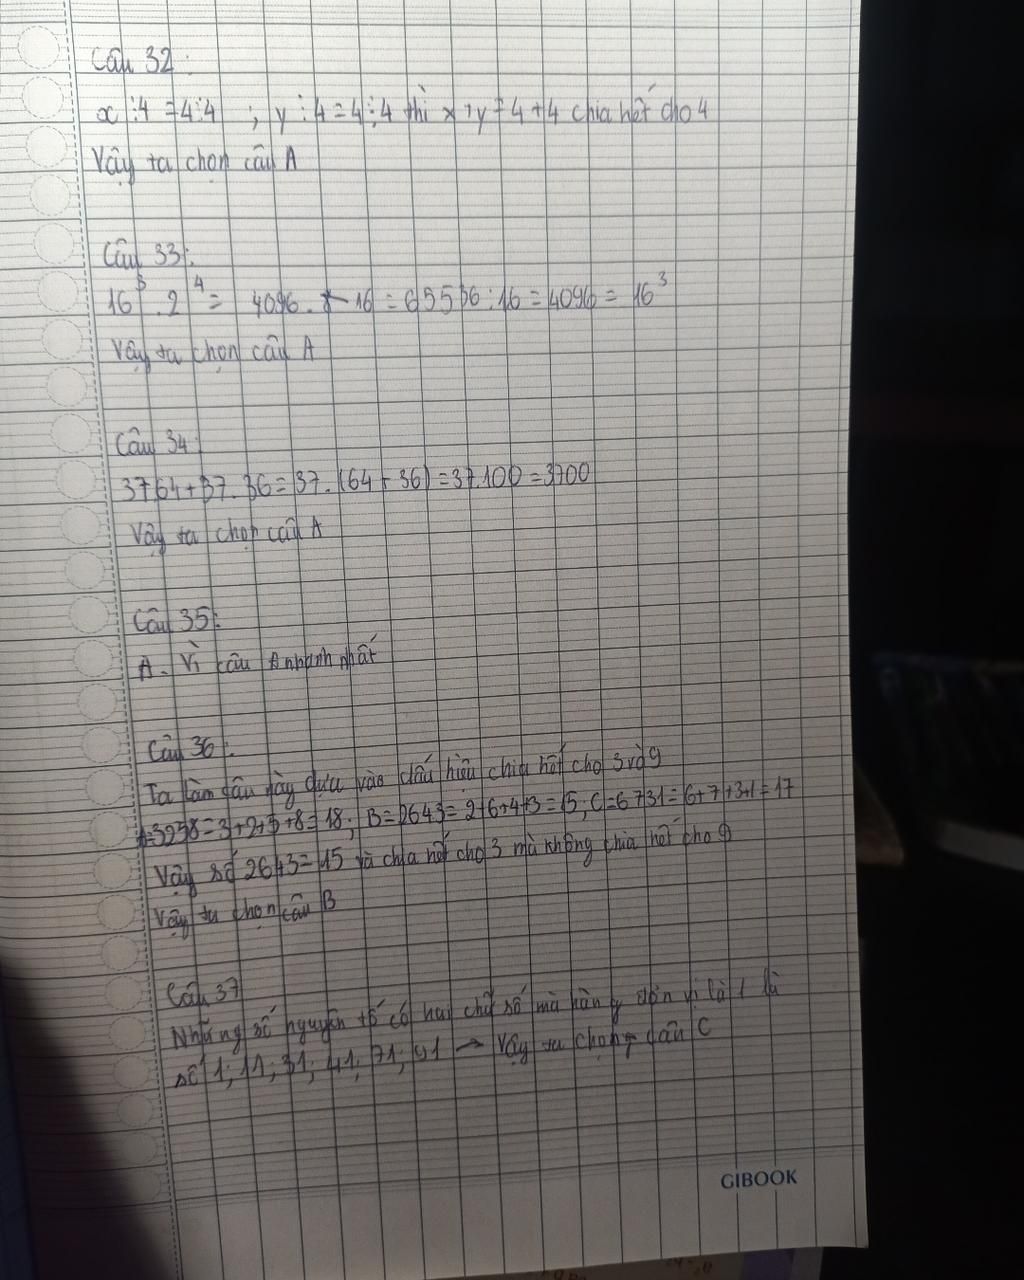 Câu 32:
x : 4 = 4 : 4 ; y : 4 = 4 : 4 thì x + y = 4 + 4 chia hết cho 4
Vậy ta chọn câu A
Câu 33:
16³ . 2⁴ = 4096 . 16 = 65536 : 16 = 4096 = 16³
Vậy ta chọn câu A
Câu 34:
37.64 + 37. 36 = 37. (64 + 36) = 37.100 = 3700
Vậy ta chọn câu A
Câu 35:
A. Vì câu A nhanh nhất
Câu 36:
Ta làm câu này dựa vào dấu hiệu chia hết cho 3 và 9
A=3258 = 3+2+5+8= 18; B= 2643= 2+6+4+3 = 15; C=6731= 6+7+3+1 = 17
Vậy số 2643= 15 và chia hết cho 3 mà không chia hết cho 9
Vậy ta chọn câu B
Câu 37
Những số nguyên tố có hai chữ số mà hàng đơn vị là 1 là
số 1; 11; 31; 41; 71; 91 → Vậy ta chọn câu C
GIBOOK